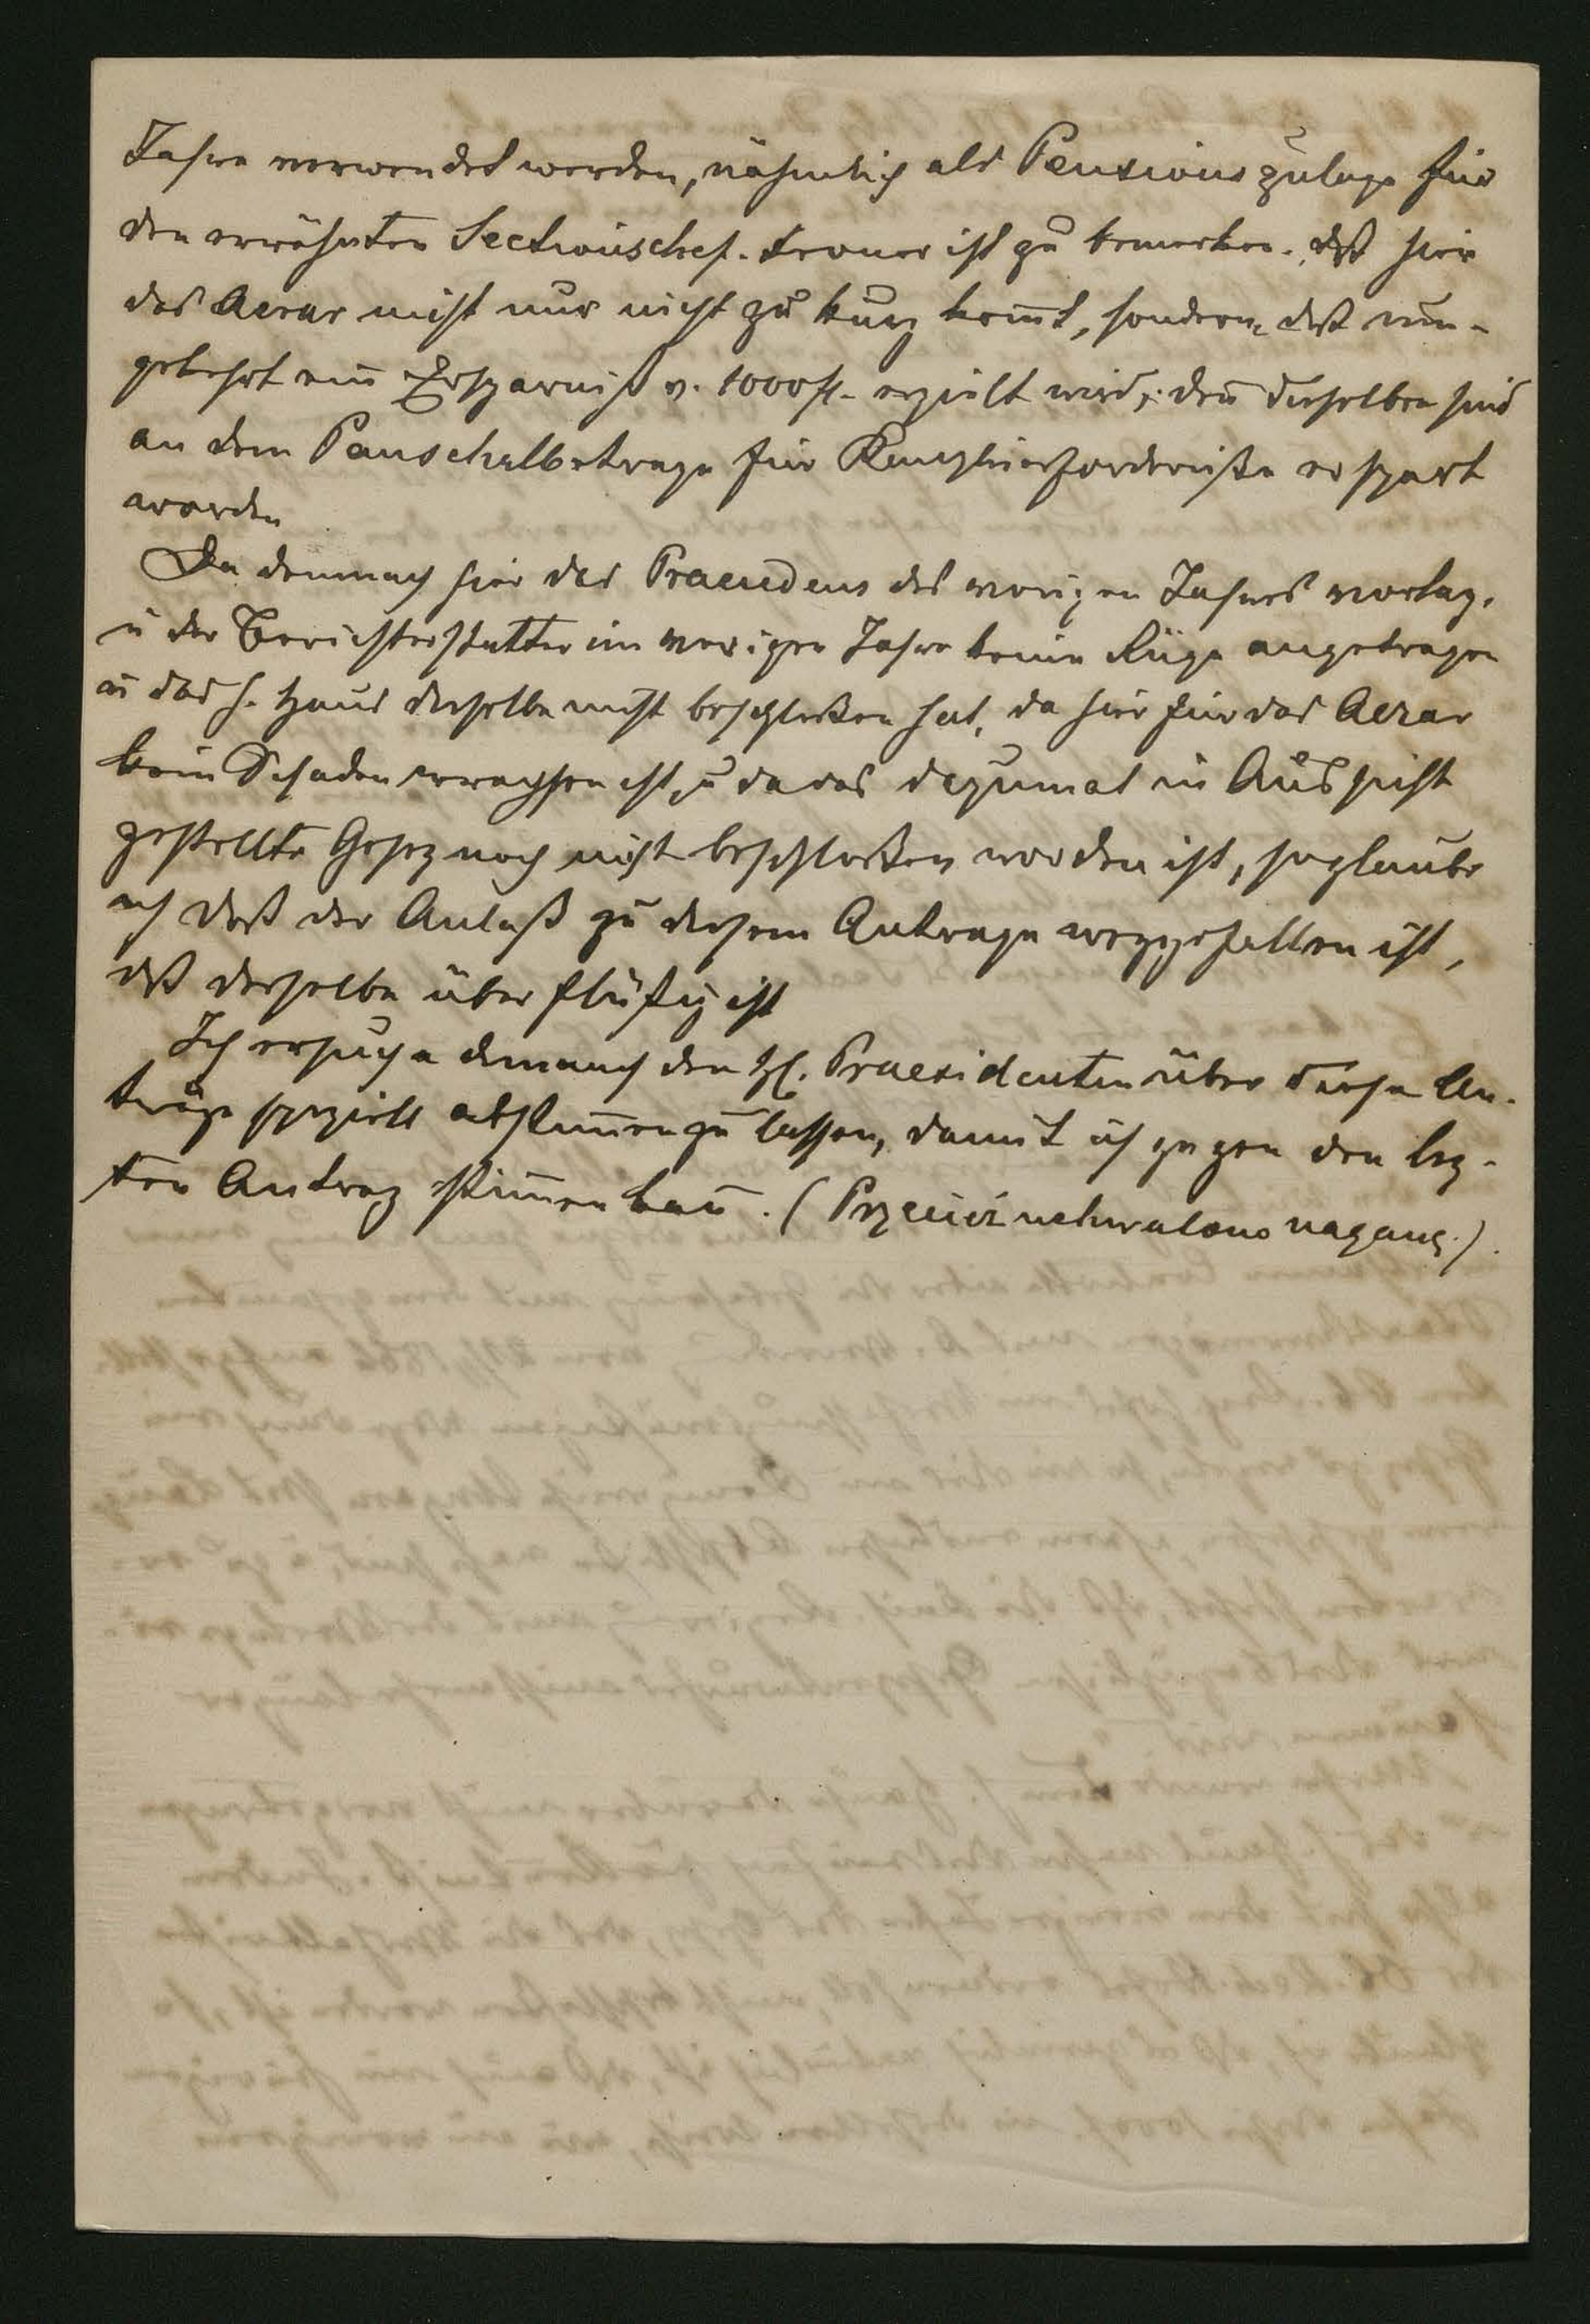 Jahre verwendet werden, nähmlich als Pensionszulage für
den erwähnten Sectionschef. Ferner ist zu bemerken, daß hier
das Aerar nicht nur nicht zu kurz kom̄t, sondern, daß um-
gekehrt ein Ersparniß v. 1000 fl. erzielt wird, den̄ dieselben sind
an dem Pauschalbetrage für Kanzleierforderniße erspart
worden
Da demnach hier das Praecedens des vorigen Jahres vorlag,
u der Berichterstatter im vorigen Jahre keine Rüge angetragen
u das h. Haus dieselbe nicht beschloßen hat, da hier für das Aerar
kein Schaden erwachsen ist, u da das dazumal in Aussicht
gestellte Gesez noch nicht beschloßen worden ist, so glaube
ich daß der Anlaß zu diesem Antrage weggefallen ist,
daß derselbe überflüßig ist
Ich ersuche demnach den H. Praesidenten über diese An-
träge speziell abstim̄en zu lassen, damit ich gegen den lez-
ten Antrag stim̄en kan̄. (Przeciw uchwalono naganę.)